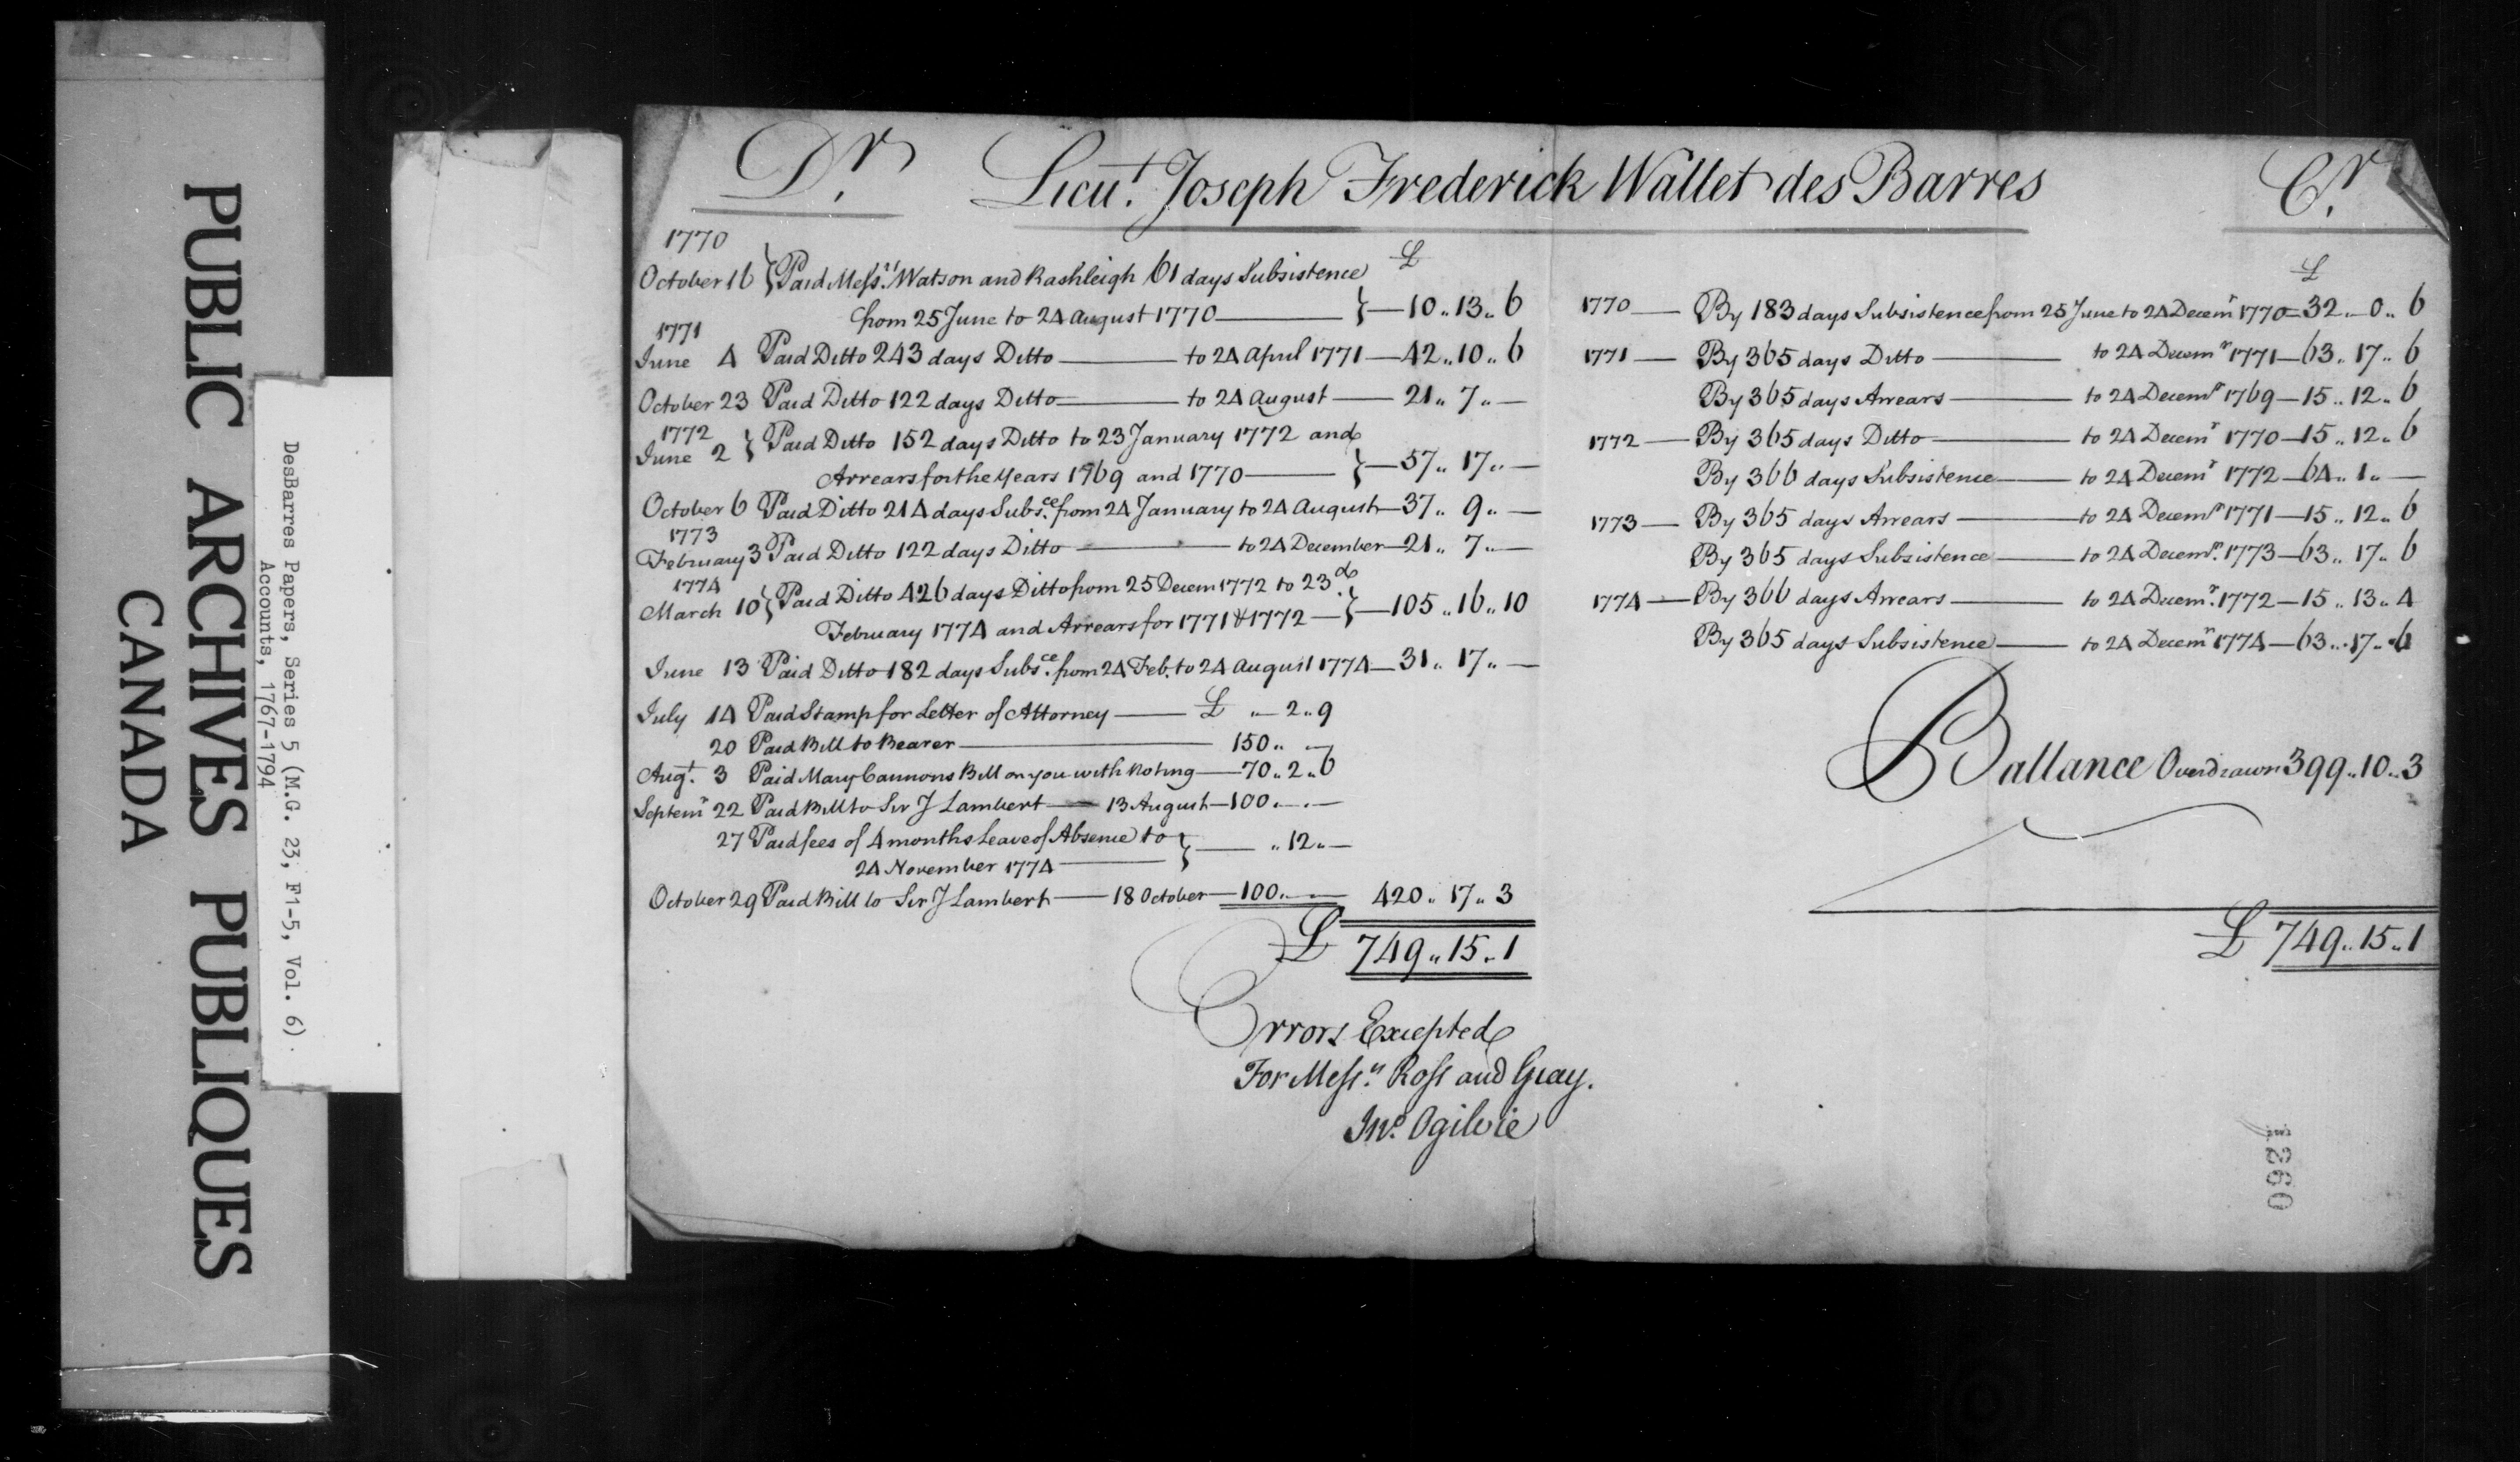 PUBLIC ARCHIVES PUBLIQUES
CANADA
DesBarres Papers, Series 5 (M.G. 23, F1-5, Vol. 6)
Accounts, 1767-1794
Dr. Lieut. Joseph Frederick Wallet des Barres Cr.
1770 £
October 16 } Paid Messrs. Watson and Rashleigh 61 days Subsistence
from 25 June to 24 August 1770 } — 10 .. 13 .. 6
1771
June 4 Paid Ditto 243 days Ditto — to 24 April 1771 — 42 .. 10 .. 6
October 23 Paid Ditto 122 days Ditto — to 24 August — 21 .. 7 .. —
1772
June 2 } Paid Ditto 152 days Ditto to 23 January 1772 and
Arrears for the Years 1769 and 1770 — } — 57 .. 17 .. —
October 6 Paid Ditto 214 days Subsce. from 24 January to 24 August — 37 .. 9 .. —
1773
February 3 Paid Ditto 122 days Ditto — to 24 December — 21 .. 7 .. —
1774
March 10 } Paid Ditto 426 days Ditto from 25 Decem 1772 to 23d.
February 1774 and Arrears for 1771 & 1772 — } — 105 .. 16 .. 10
June 13 Paid Ditto 182 days Subsce. from 24 Feb. to 24 August 1774 — 31 .. 17 .. —
July 14 Paid Stamp for Letter of Attorney — £ .. — 2 .. 9
20 Paid Bill to Bearer — 150 .. —
Augt. 3 Paid Mary Cannons Bill on you with Noting — 70 .. 2 .. 6
Septemr 22 Paid Bill to Sir J Lambert — 13 August — 100 .. — . —
27 Paid fees of 4 months Leave of Absence to } — .. 12 .. —
24 November 1774 —
October 29 Paid Bill to Sir J Lambert — 18 October — 100 .. — — 420 .. 17 .. 3
£ 749 .. 15 .. 1
Errors Excepted
For Messrs. Ross and Gray.
Jno. Ogilvie
£
1770 — By 183 days Subsistence from 25 June to 24 Decemr 1770 — 32 .. 0 .. 6
1771 — By 365 days Ditto — to 24 Decemr 1771 — 63 .. 17 .. 6
By 365 days Arrears — to 24 Decemr 1769 — 15 .. 12 .. 6
1772 — By 365 days Ditto — to 24 Decemr 1770 — 15 .. 12 .. 6
By 366 days Subsistence — to 24 Decemr 1772 — 64 .. 1 .. —
1773 — By 365 days Arrears — to 24 Decemr 1771 — 15 .. 12 .. 6
By 365 days Subsistence — to 24 Decemr. 1773 — 63 .. 17 .. 6
1774 — By 366 days Arrears — to 24 Decemr. 1772 — 15 .. 13 .. 4
By 365 days Subsistence — to 24 Decemr 1774 — 63 .. 17 .. 6
Ballance Overdrawn 399 .. 10 .. 3
£ 749 .. 15 .. 1
1260